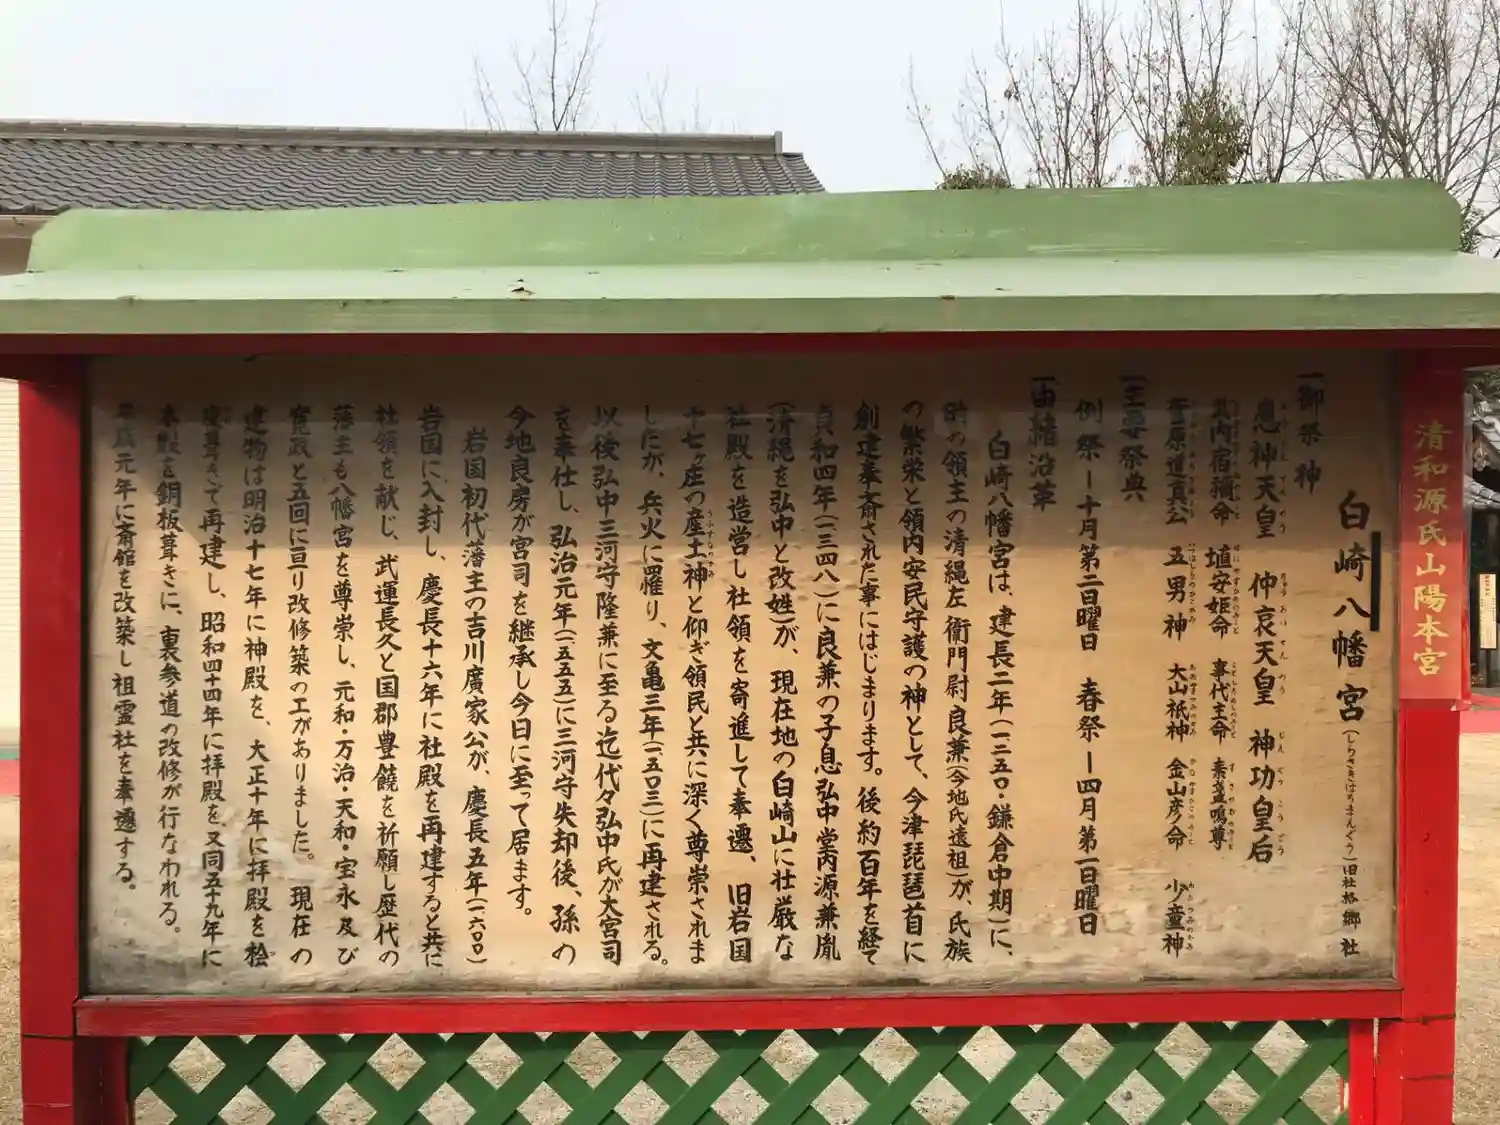 清和源氏山陽本宮
白崎八幡宮(しらさきはちまんぐう)旧社格郷社
一御祭神
應神天皇 仲哀天皇 神功皇后
武内宿禰命 埴安姫命 事代主命 素盞鳴尊
菅原道真公 五男神 大山祇神 金山彦命 少童神
一主要祭典
例祭ー十月第二日曜日 春祭ー四月第一日曜日
一由緒沿革
白崎八幡宮は、建長二年(一二五〇・鎌倉中期)に、
時の領主の清縄左衛門尉良兼(今地氏遠祖)が、氏族
の繁栄と領内安民守護の神として、今津琵琶首に
創建奉斎された事にはじまります。後約百年を経て
貞和四年(一三四八)に良兼の子息弘中堂丙源兼胤
(清縄を弘中と改姓)が、現在地の白崎山に壮厳な
社殿を造営し社領を寄進して奉遷、旧岩国
十七ヶ庄の産土神と仰ぎ領民と共に深く尊崇されま
したが、兵火に罹り、文亀三年(一五〇三)に再建される。
以後弘中三河守隆兼に至る迄代々弘中氏が大宮司
を奉仕し、弘治元年(一五五五)に三河守失却後、孫の
今地良房が宮司を継承し今日に至って居ます。
岩国初代藩主の吉川廣家公が、慶長五年(一六〇〇)
岩国に入封し、慶長十六年に社殿を再建すると共に
社領を献じ、武運長久と国郡豊饒を祈願し歴代の
藩主も八幡宮を尊崇し、元和・万治・天和・宝永及び
寛政と五回に亘り改修築の工がありました。現在の
建物は明治十七年に神殿を、大正十年に拝殿を桧
皮葺きで再建し、昭和四十四年に拝殿を、又同五十九年に
本殿を銅板葺きに、裏参道の改修が行なわれる。
平成元年に斎館を改築し祖霊社を奉遷する。